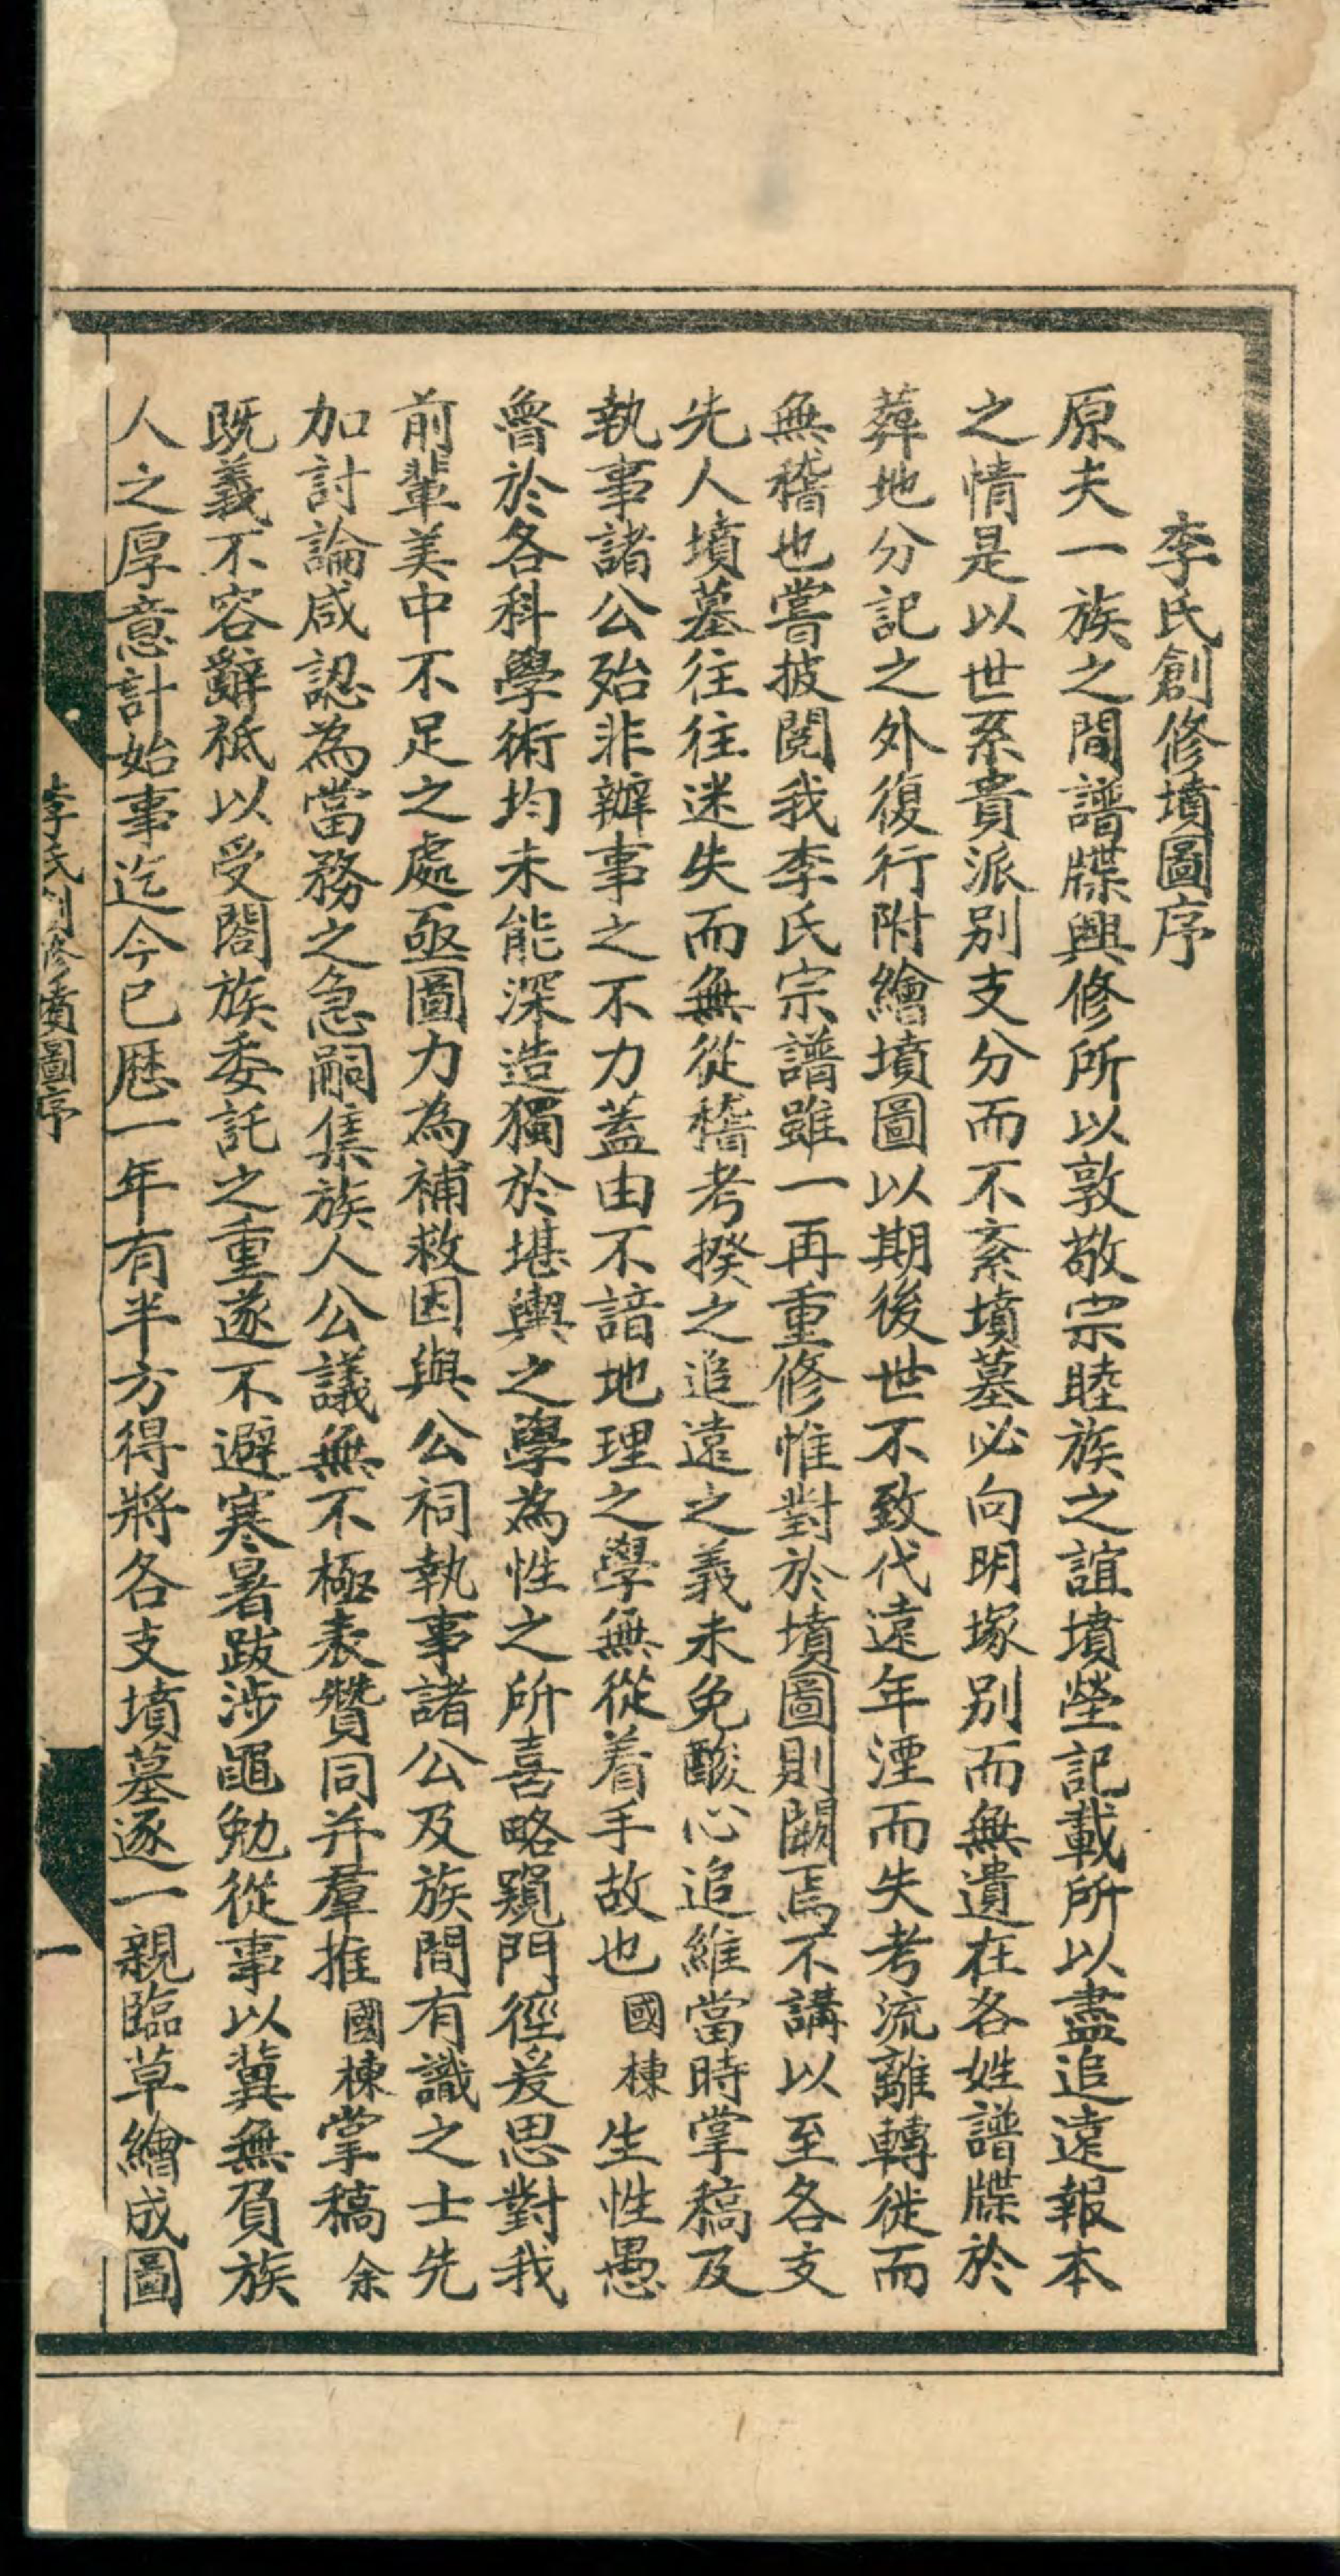 李氏創修墳圖序
原夫一族之間譜牒興修所以敦敬宗睦族之誼墳塋記載所以盡追遠報本
之情是以世系貴派別支分而不紊墳墓必向明塚別而無遺在各姓譜牒於
葬地分記之外復行附繪墳圖以期後世不致代遠年湮而失考流離轉徙而
無稽也嘗披閱我李氏宗譜雖一再重修惟對於墳圖則闕焉不講以至各支
先人墳墓往往迷失而無從稽考揆之追遠之義未免酸心追維當時掌稿及
執事諸公殆非辦事之不力蓋由不諳地理之學無從着手故也國棟生性愚
魯於各科學術均未能深造獨於堪輿之學為性之所喜略窺門徑爰思對我
前輩美中不足之處亟圖力為補救因與公祠執事諸公及族間有識之士先
加討論咸認為當務之急嗣集族人公議無不極表贊同并羣推國棟掌稿余
既義不容辭祗以受閤族委託之重遂不避寒暑跋涉黽勉從事以冀無負族
人之厚意計始事迄今已歷一年有半方得將各支墳墓逐一親臨草繪成圖
李氏創修墳圖序
一